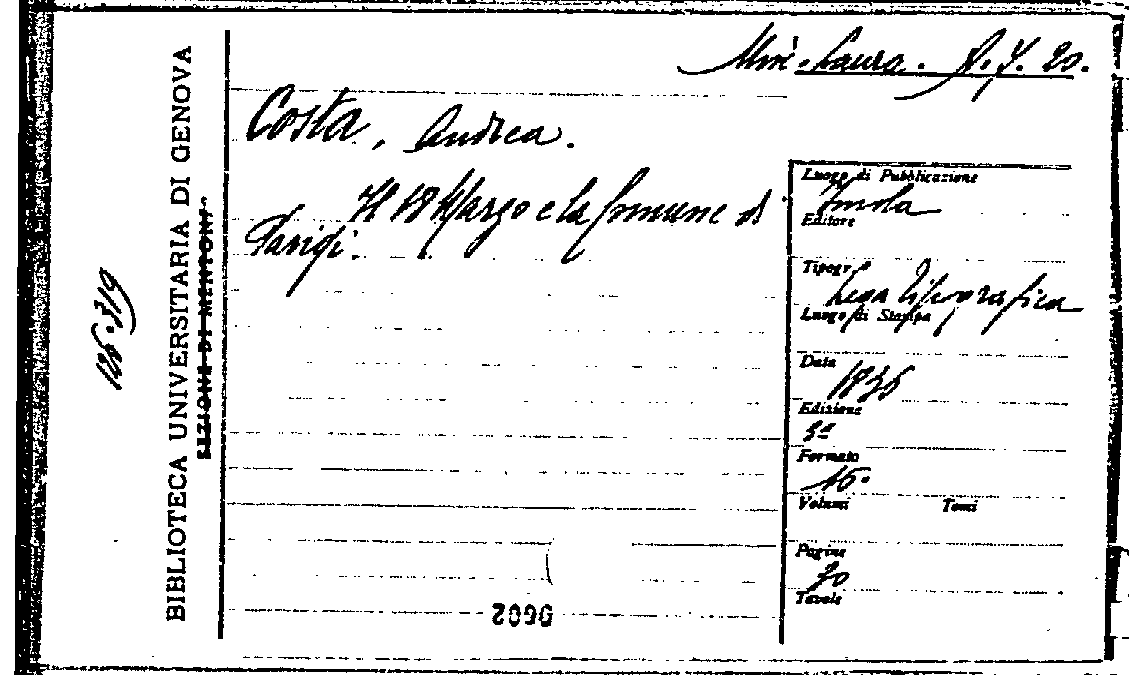 Misc. Laura. A. 7. 20.
Costa, Andrea.
Il 18 Marzo e la Comune di
Parigi.
Luogo di Pubblicazione
Imola
Editore
Tipogr.
Lega Tipografica
Luogo di Stampa
Data
Edizione
Formato
16°
Volumi Tomi
Pagine
Tavole
BIBLIOTECA UNIVERSITARIA DI GENOVA
126.319